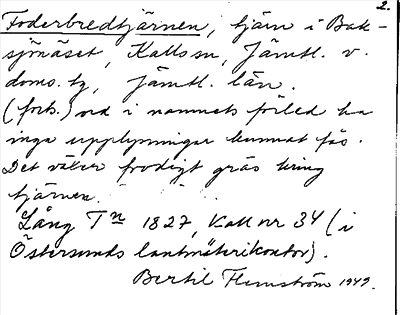 2.
Foderbredtjärnen, tjärn i Bak-
sjönäset, Kall sn, Jämtl. v.
doms. tg, Jämtl. län.
(forts.) ord i namnets förled ha
inga upplysningar kunnat fås.
Det växer frodigt gräs kring
tjärnen.
Lång Tn 1827, Kall nr 34 (i
Östersunds lantmäterikontor).
Bertil Flemström 1949.